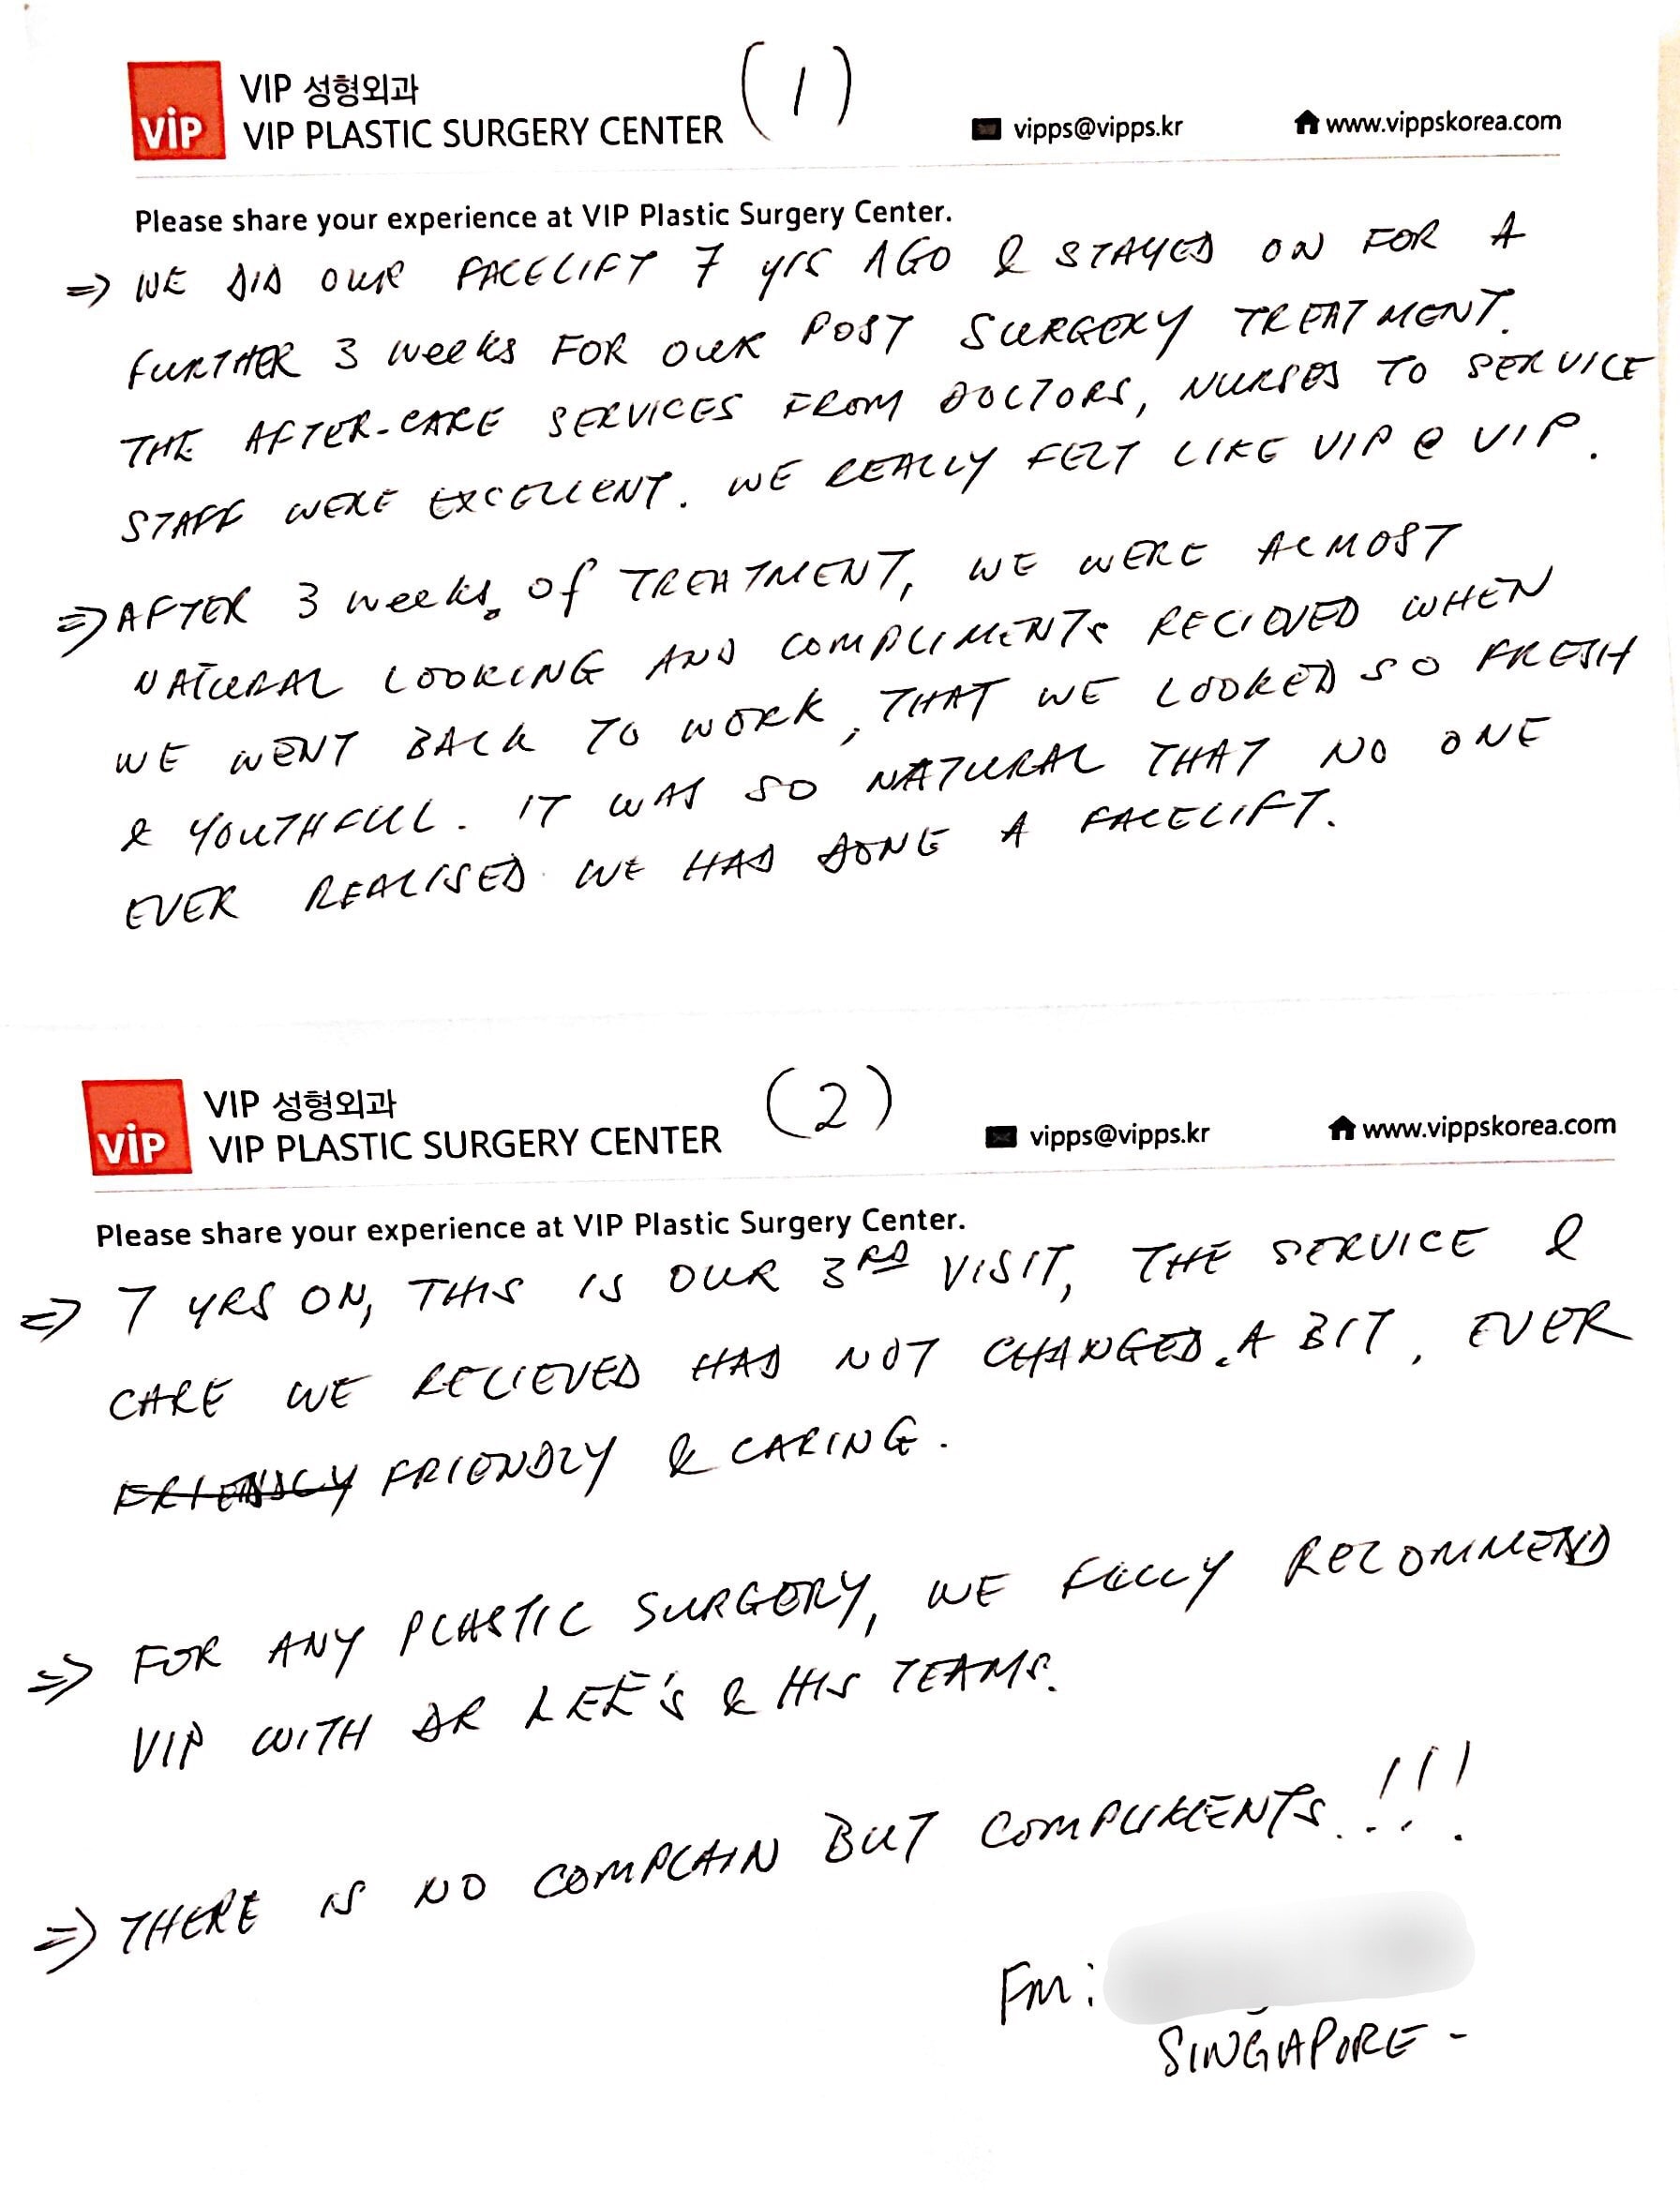 (1)
VIP 성형외과
ViP
VIP PLASTIC SURGERY CENTER
vipps@vipps.kr
www.vippskorea.com
Please share your experience at VIP Plastic Surgery Center.
⇒ WE DID OUR FACELIFT 7 yrs AGO & STAYED ON FOR A
FURTHER 3 weeks FOR OUR POST SURGERY TREATMENT.
THE AFTER-CARE SERVICES FROM DOCTORS, NURSES TO SERVICE
STAFF WERE EXCELLENT. WE REALLY FELT LIKE VIP @ VIP.
⇒ AFTER 3 weeks of TREATMENT, WE WERE ALMOST
NATURAL LOOKING AND COMPLIMENTS RECIEVED WHEN
WE WENT BACK TO WORK, THAT WE LOOKED SO FRESH
& YOUTHFUL. IT WAS SO NATURAL THAT NO ONE
EVER REALISED WE HAD DONE A FACELIFT.
(2)
VIP 성형외과
ViP
VIP PLASTIC SURGERY CENTER
vipps@vipps.kr
www.vippskorea.com
Please share your experience at VIP Plastic Surgery Center.
⇒ 7 YRS ON, THIS IS OUR 3RD VISIT, THE SERVICE &
CARE WE RECIEVED HAD NOT CHANGED A BIT, EVER
FRIENDLY FRIENDLY & CARING.
⇒ FOR ANY PLASTIC SURGERY, WE FULLY RECOMMEND
VIP WITH DR LEE'S & HIS TEAMS.
⇒ THERE IS NO COMPLAIN BUT COMPLIMENTS.!!!
Fm:
SINGAPORE -